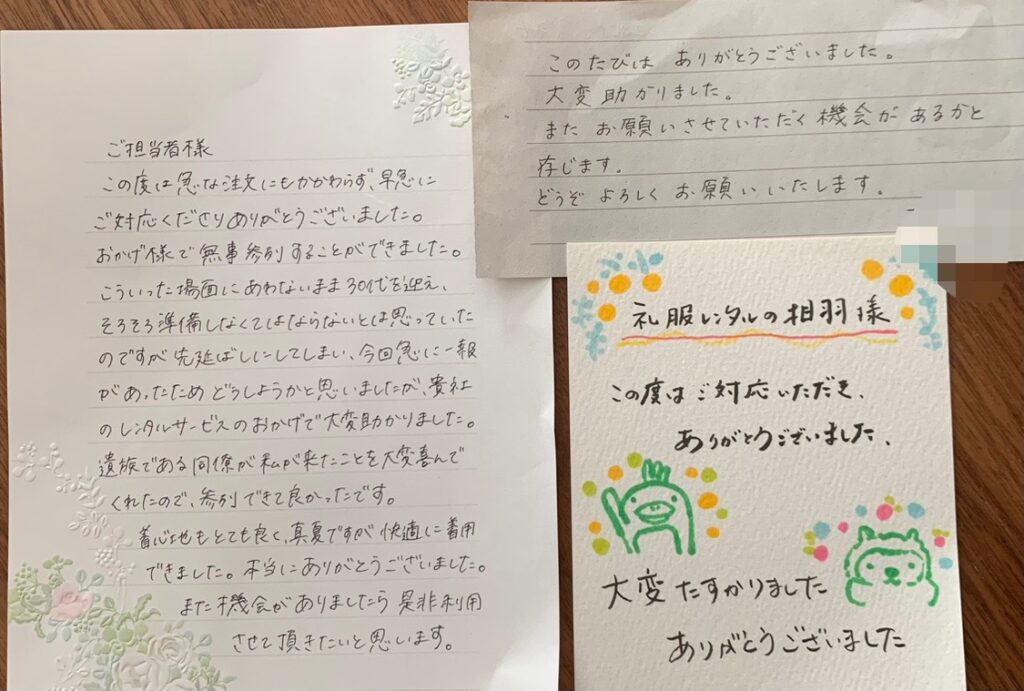 ご担当者様
この度は急な注文にもかかわらず、早急に
ご対応くださりありがとうございました。
おかげ様で無事参列することができました。
こういった場面にあわないまま30代を迎え、
そろそろ準備しなくてはならないとは思っていた
のですが先延ばしにしてしまい、今回急に一報
があったためどうしようかと思いましたが、貴社
のレンタルサービスのおかげで大変助かりました。
遺族である同僚が私が来たことを大変喜んで
くれたので、参列できて良かったです。
着心地もとても良く、真夏ですが快適に着用
できました。本当にありがとうございました。
また機会がありましたら是非利用
させて頂きたいと思います。
このたびは ありがとうございました。
大変助かりました。
また お願いさせていただく機会が あるかと
存じます。
どうぞ よろしく お願い いたします。
礼服レンタルの相羽様
この度はご対応いただき、
ありがとうございました、
大変たすかりました
ありがとうございました